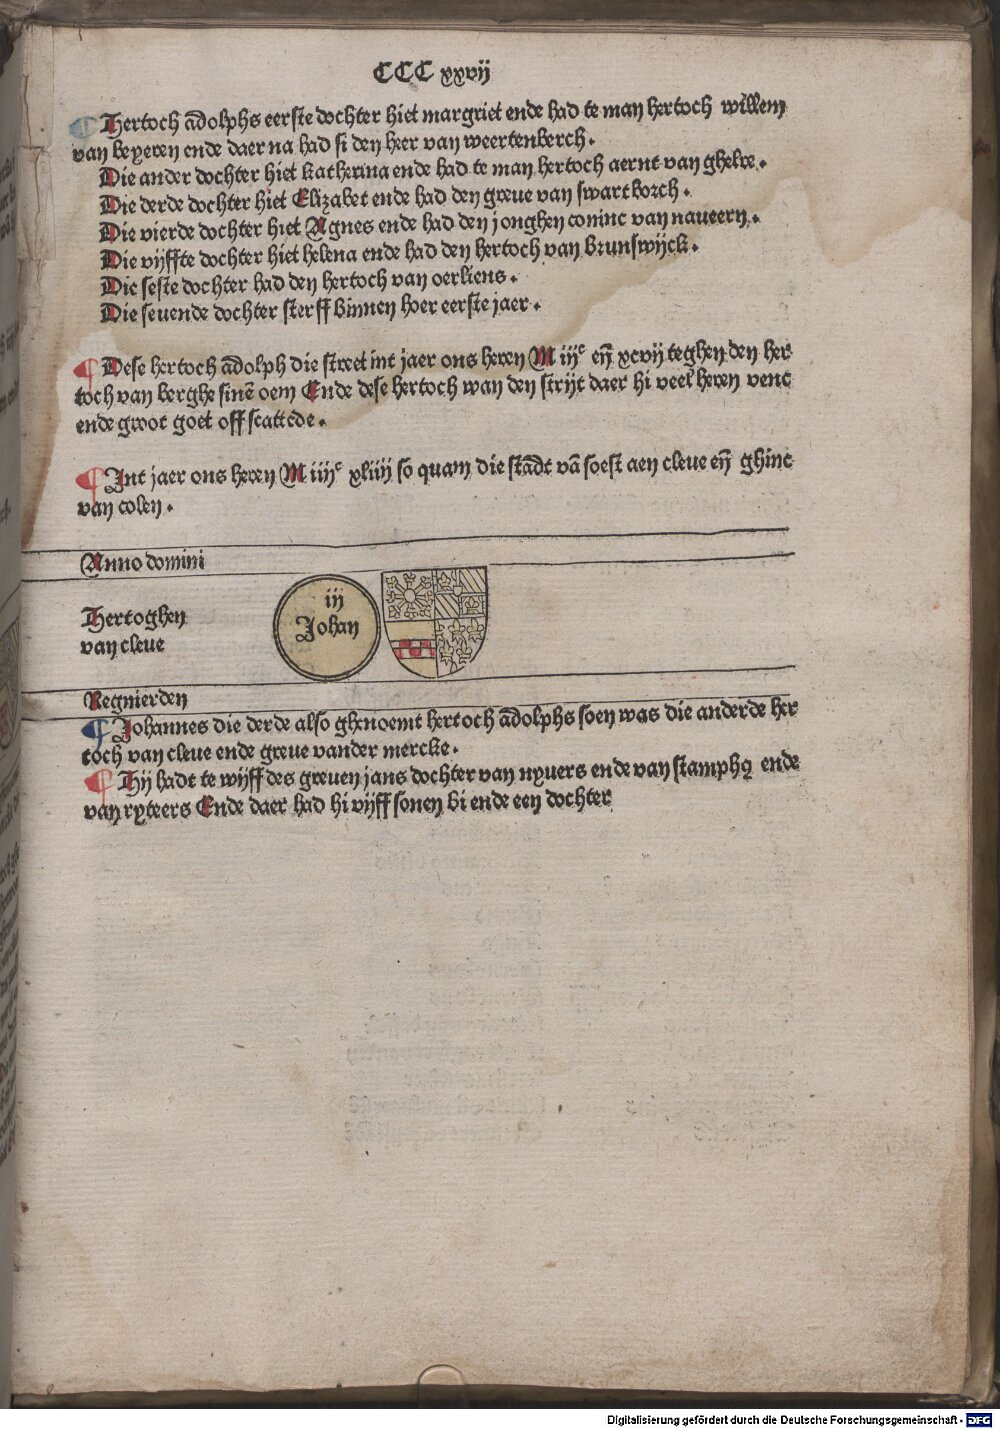 CCC xxvij
¶ Hertoch adolphs eerste dochter hiet margriet ende had te man hertoch willem
van beyeren ende daer na had si den heer van weertenberch.
Die ander dochter hiet katherina ende had te man hertoch aernt van ghelre.
Die derde dochter hiet Elizabet ende had den greue van swartborch.
Die vierde dochter hiet Agnes ende had den jonghen coninc van naueern.
Die vijffte dochter hiet helena ende had den hertoch van brunswijck.
Die seste dochter had den hertoch van oerliens.
Die seuende dochter sterff binnen hoer eerste jaer.
¶ Dese hertoch adolph die street int jaer ons heren M iijᶜ eñ xcvij teghen den her
toch van berghe sinē oem Ende dese hertoch wan den strijt daer hi veel heren venc
ende groot goet off scattede.
¶ Int jaer ons heren M iiijᶜ xliiij so quam die stadt vā soest aen cleue eñ ghinc
van colen.
Anno domini
Hertoghen
van cleue
iij
Johan
Regnierden
¶ Johannes die derde also ghenoemt hertoch adolphs soen was die anderde her
toch van cleue ende greue vander mercke.
¶ Hij hadt te wijff des greuen jans dochter van nyuers ende van stamphꝫ ende
van ryteers Ende daer had hi vijff sonen bi ende een dochter
Digitalisierung gefördert durch die Deutsche Forschungsgemeinschaft - DFG